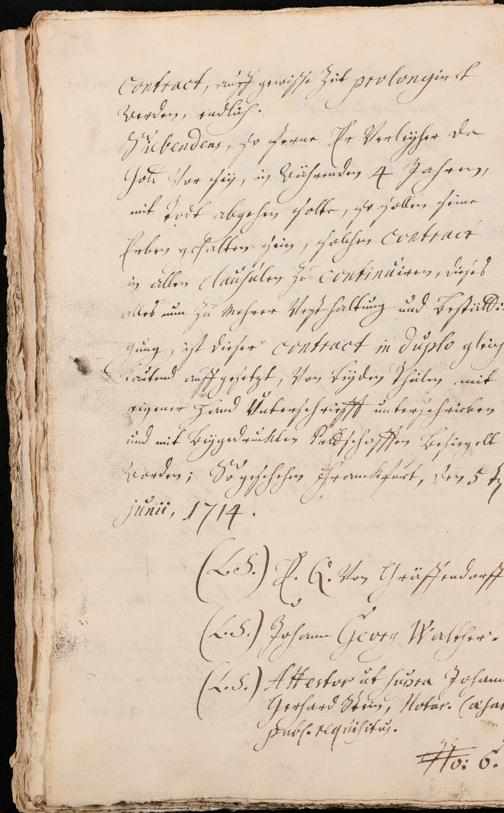 contract, auff gewisse Zeit prolongiret
Werden, endlich.
Siebendens, so ferne Er Verleyher da
Gott Vor sey, in Währenden 4 Jahren,
mit Todt abgehen solte, so sollen seine
Erben gehalten sein, solchen contract
in allen clausulen zu continuiren, dieses
alles nun zu Mehrer Vesthaltung und Bestätti-
gung, ist dieser contract in duplo gleich
lautend auffgesetzt, Von beyden Theilen mit
eigener Hand Unterschrifft unterschrieben
und mit beygedruckten Pettschafften besiegelt
Worden; So geschehen Franckfurt, den 5
junii, 1714.
(L.S.) Von Gräffendorff
(L.S.) Johann Georg Walther.
(L.S.) Attestor ut supra Johann
Gerhard Stein, Notar. Caesar
publ. requisitus.
No: 6.